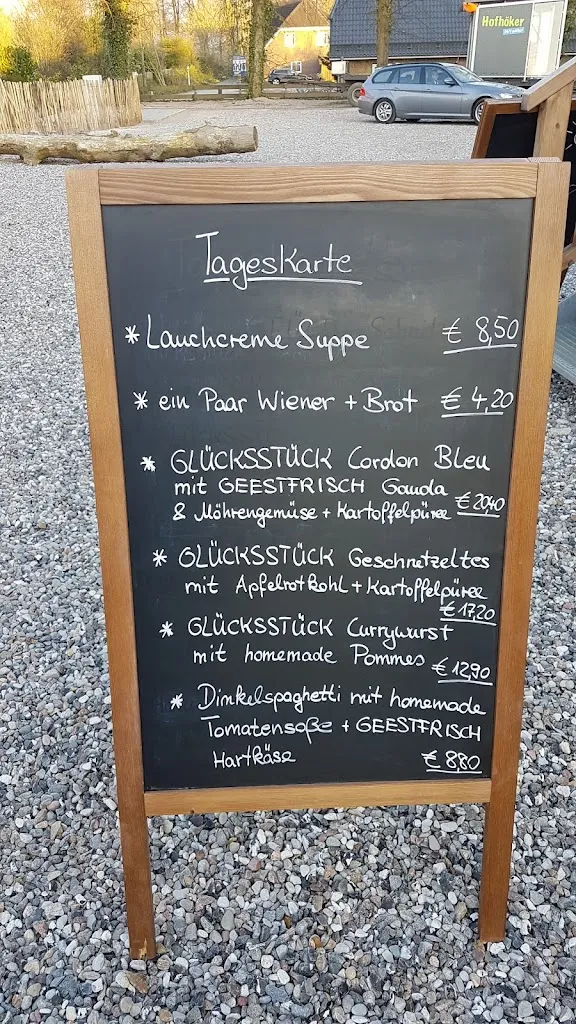 Hofhöker
Tageskarte
* Lauchcreme Suppe € 8,50
* ein Paar Wiener + Brot € 4,20
* GLÜCKSSTÜCK Cordon Bleu
mit GEESTFRISCH Gouda
& Möhrengemüse + Kartoffelpüree € 20,40
* GLÜCKSSTÜCK Geschnetzeltes
mit Apfelrotkohl + Kartoffelpüree
€ 17,20
* GLÜCKSSTÜCK Currywurst
mit homemade Pommes € 12,90
* Dinkelspaghetti mit homemade
Tomatensoße + GEESTFRISCH
Hartkäse € 8,80